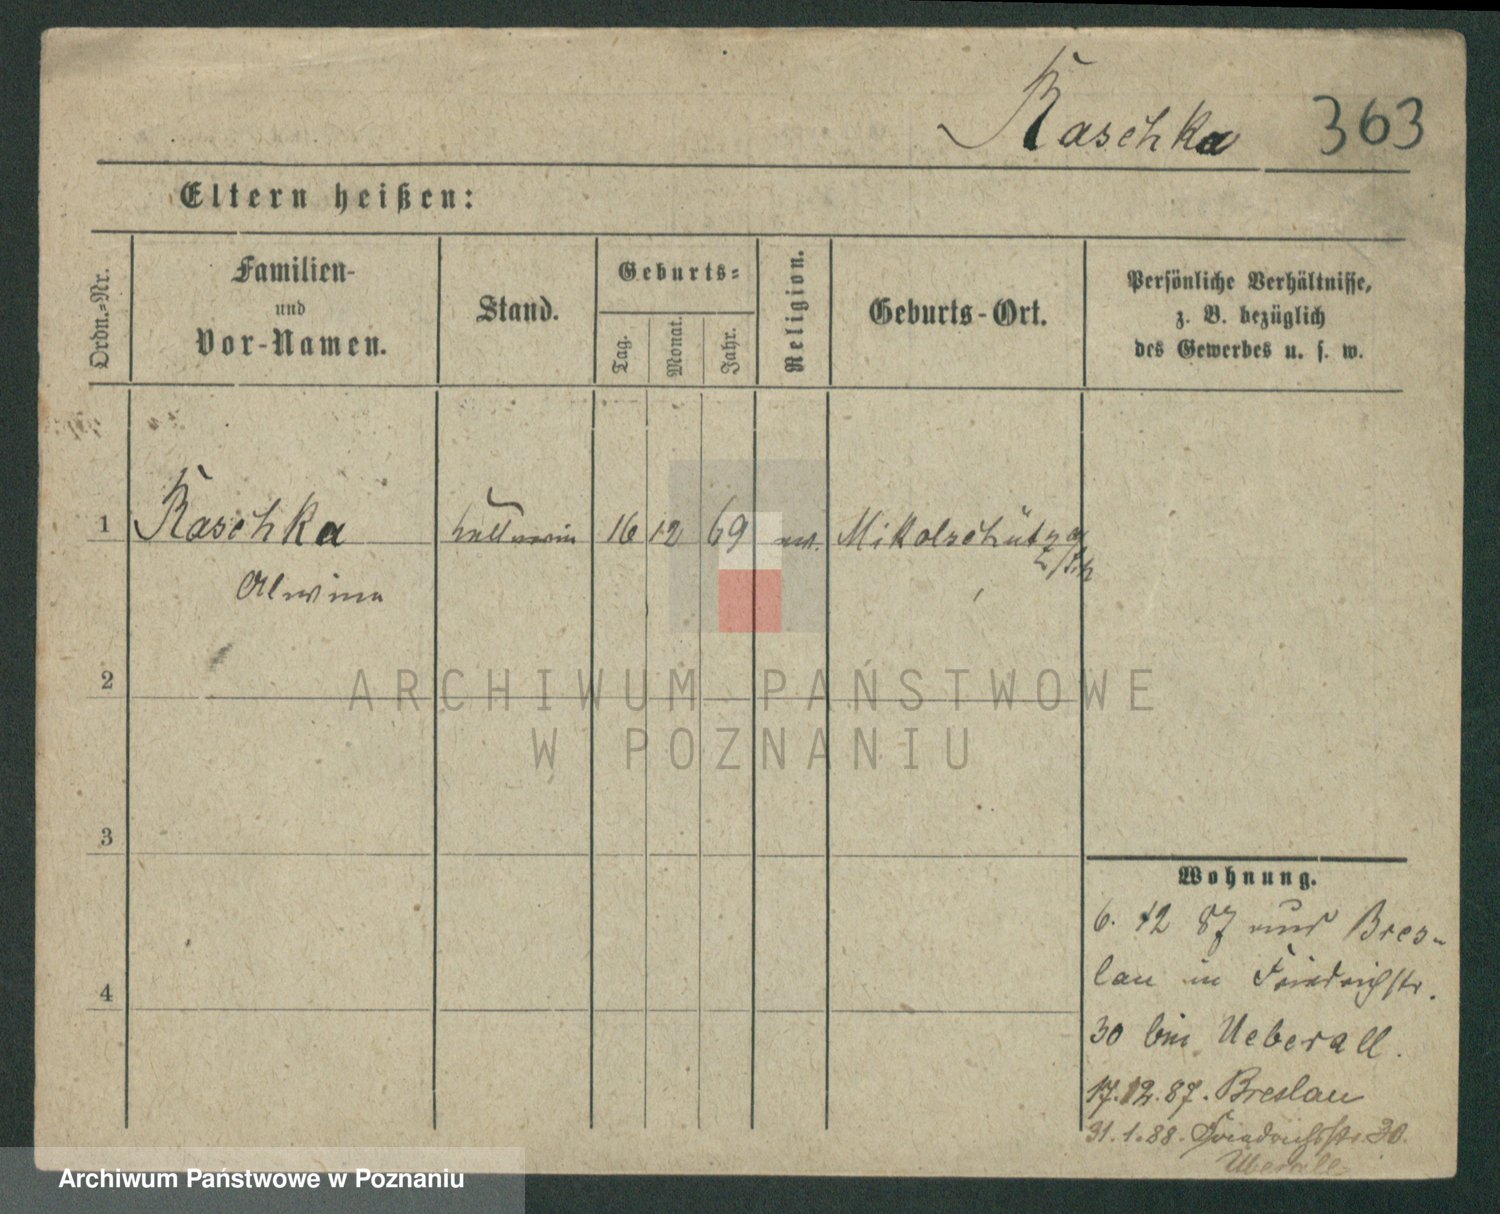 Raschka 363
Eltern heißen:
Ordn.-Nr.
Familien-
und
Vor-Namen.
Stand.
Geburts-
Tag.
Monat.
Jahr.
Religion.
Geburts-Ort.
Persönliche Verhältnisse,
z. B. bezüglich
des Gewerbes u. s. w.
1 Raschka Kellnerin 16 12 69 Mikolschütz
Alwina
2
ARCHIWUM PAŃSTWOWE
W POZNANIU
3
4
Wohnung.
6. 12 87 aus Bres-
lau in Friedrichstr.
30 bei Ueberall.
17.12.87. Breslau
31.1.88. Friedrichstr. 30.
Ueberall
Archiwum Państwowe w Poznaniu